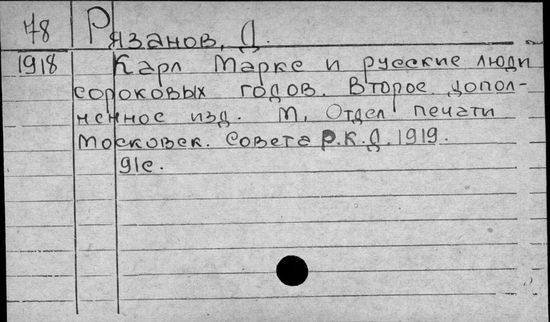 78 Рязанов, Д.
1918 Карл Маркс и русские люди
сороковых годов. Второе допол-
ненное изд. М, Отдел печати
Московск. Совета Р.К.Д. 1919.
91с.